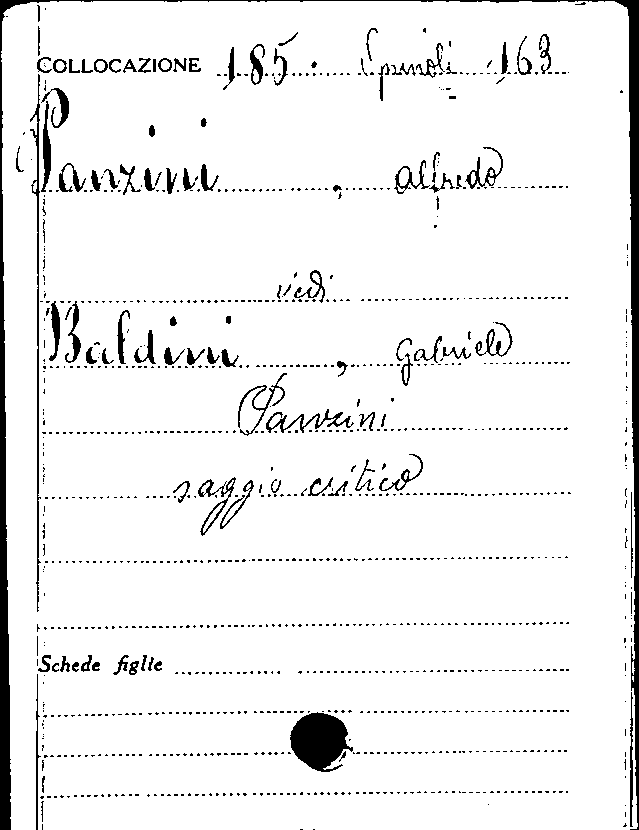 COLLOCAZIONE 185. Spinoli 163
Panzini, Alfredo
vedi
Baldini, Gabriele
Panzini
saggio critico
Schede figlie